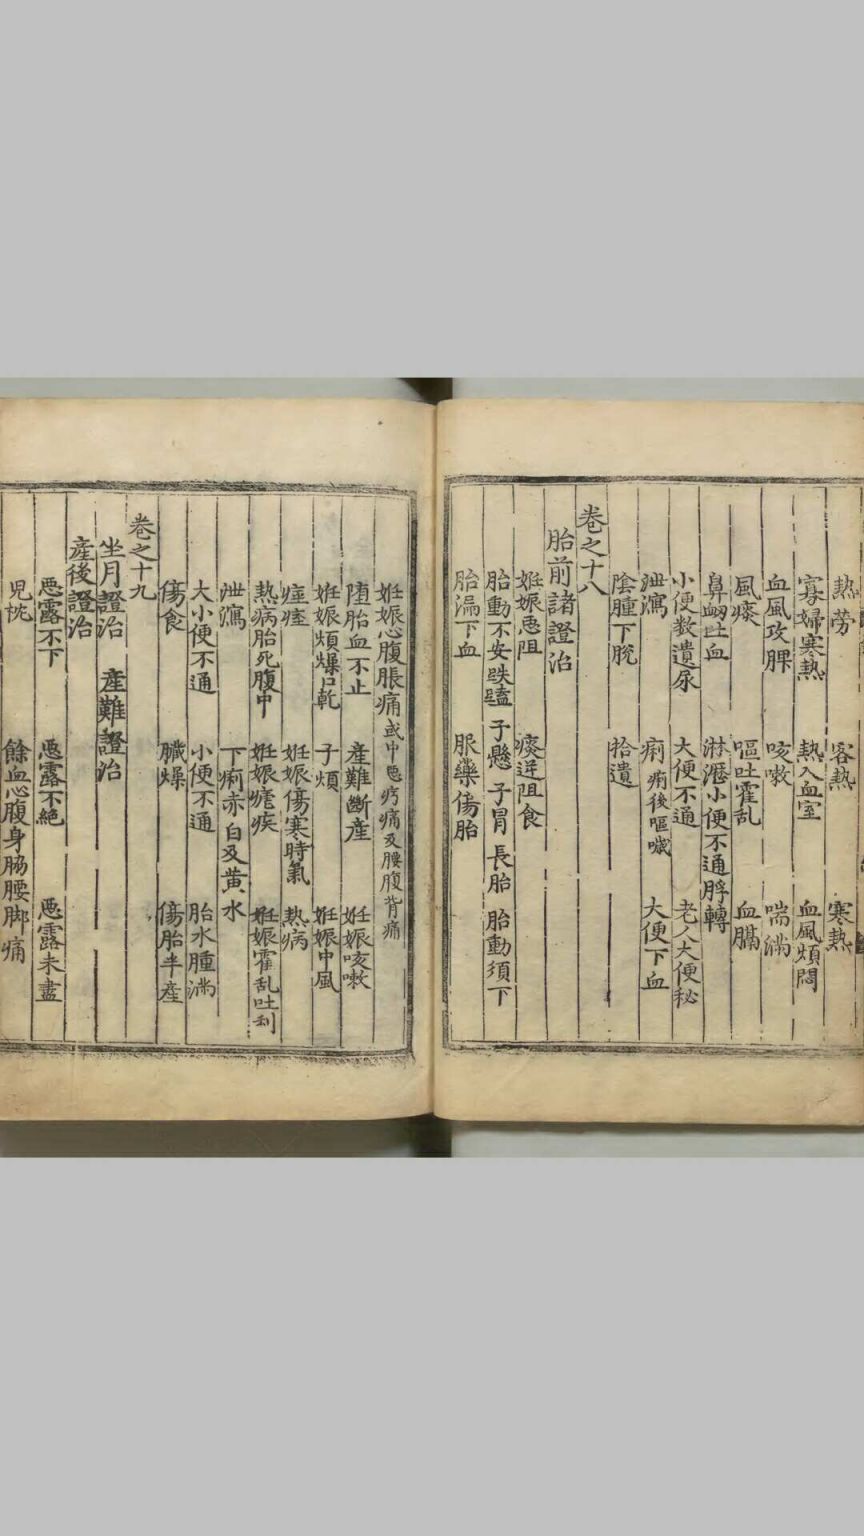 熱勞 客熱 寒熱
寡婦寒熱 熱入血室 血風煩悶
血風攻脾 咳嗽 喘滿
風痰 嘔吐霍乱 血膈
鼻衂吐血 淋瀝小便不通脬轉
小便数遺尿 大便不通 老人大便秘
泄瀉 痢 痢後嘔噦 大便下血
陰腫下脫 拾遺
卷之十八
胎前諸證治
妊娠惡阻 痰逆阻食
胎動不安跌磕 子懸 子冐 長胎 胎動須下
胎漏下血 服藥傷胎
妊娠心腹脹痛或中惡㽲痛及腰腹背痛
墮胎血不止 產難斷產 妊娠咳嗽
妊娠煩燥口乾 子煩 妊娠中風
痙痓 妊娠傷寒時氣 熱病
熱病胎死腹中 妊娠瘧疾 妊娠霍乱吐利
泄瀉 下痢赤白及黄水
大小便不通 小便不通 胎水腫滿
傷食 臟燥 傷胎半產
卷之十九
坐月證治 產難證治
產後證治
惡露不下 惡露不絕 惡露未盡
兒枕 餘血心腹身脇腰脚痛